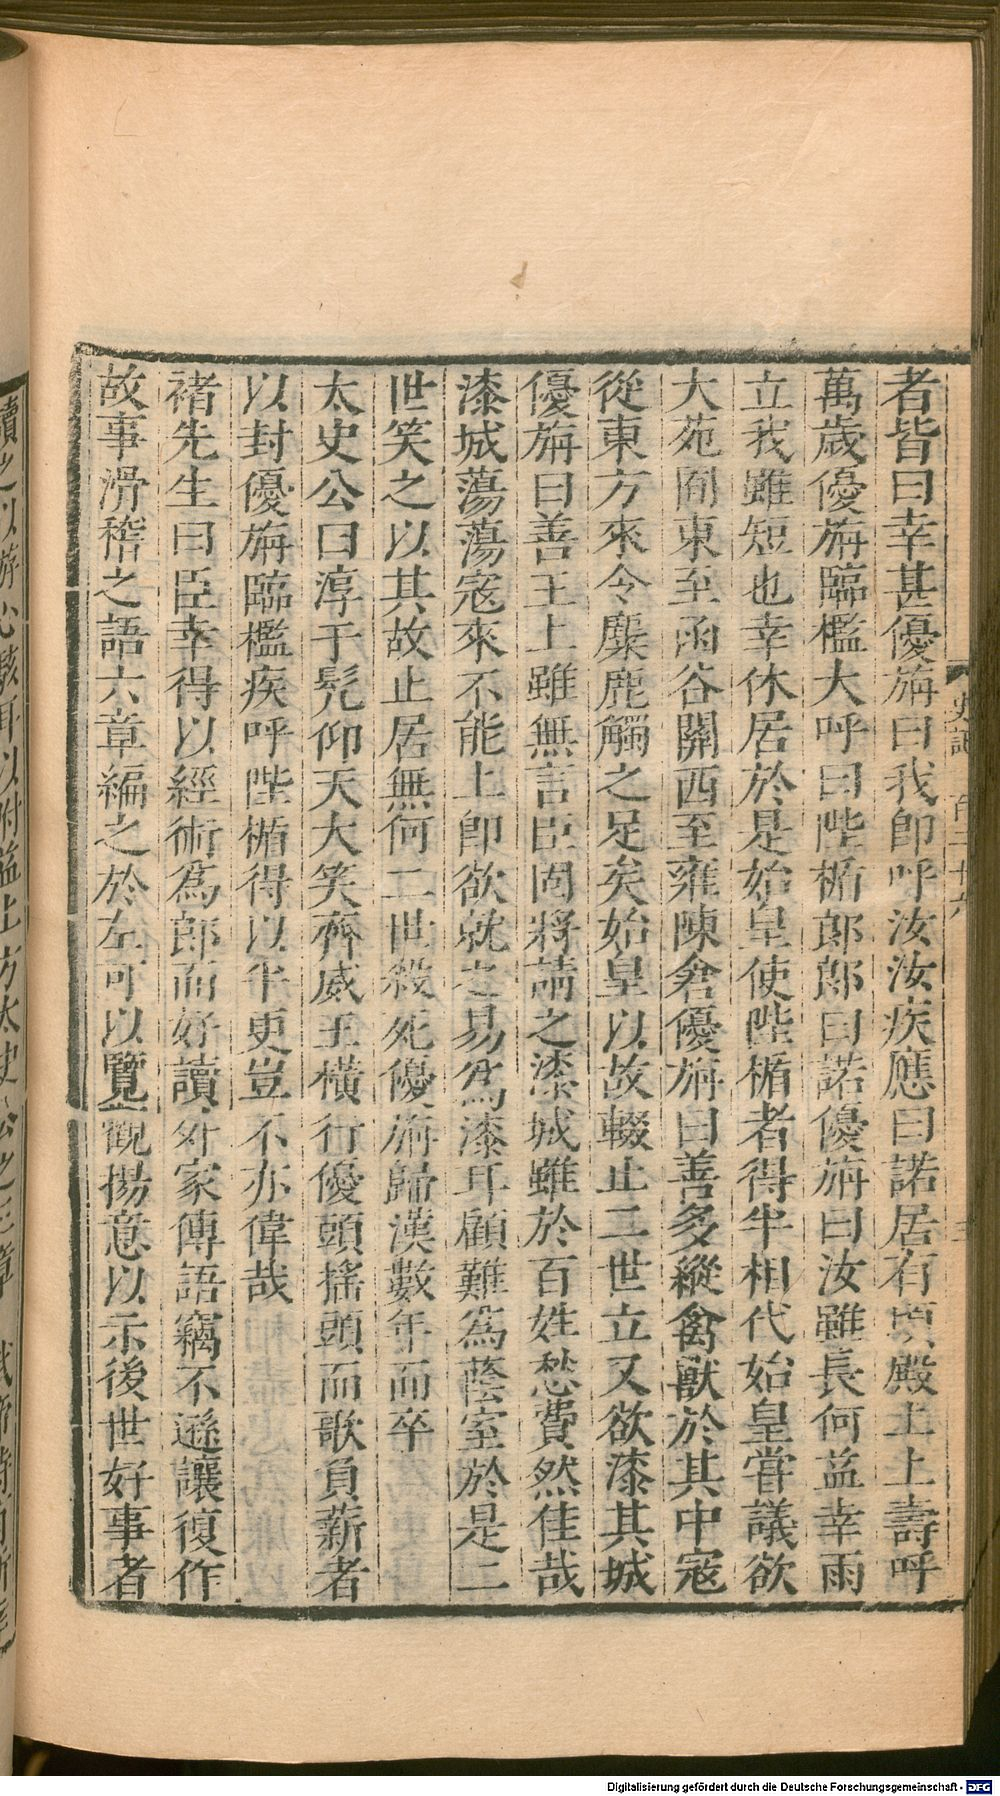 者皆曰幸甚優旃曰我即呼汝汝疾應曰諾居有頃殿上上壽呼
萬歲優旃臨檻大呼曰陛楯郎郎曰諾優旃曰汝雖長何益幸雨
立我雖短也幸休居於是始皇使陛楯者得半相代始皇嘗議欲
大苑囿東至函谷關西至雍陳倉優旃曰善多縱禽獸於其中寇
從東方來令麋鹿觸之足矣始皇以故輟止二世立又欲漆其城
優旃曰善主上雖無言臣固將請之漆城雖於百姓愁費然佳哉
漆城蕩蕩寇來不能上即欲就之易為漆耳顧難為蔭室於是二
世笑之以其故止居無何二世殺死優旃歸漢數年而卒
太史公曰淳于髡仰天大笑齊威王橫行優頭搖頭而歌負薪者
以封優旃臨檻疾呼陛楯得以半更豈不亦偉哉
褚先生曰臣幸得以經術為郎而好讀外家傳語竊不遜讓復作
故事滑稽之語六章編之於左可以覽觀揚意以示後世好事者
讀之以游心駭耳以附益上方太史公之三章
史記 百二十六
Digitalisierung gefördert durch die Deutsche Forschungsgemeinschaft - DFG